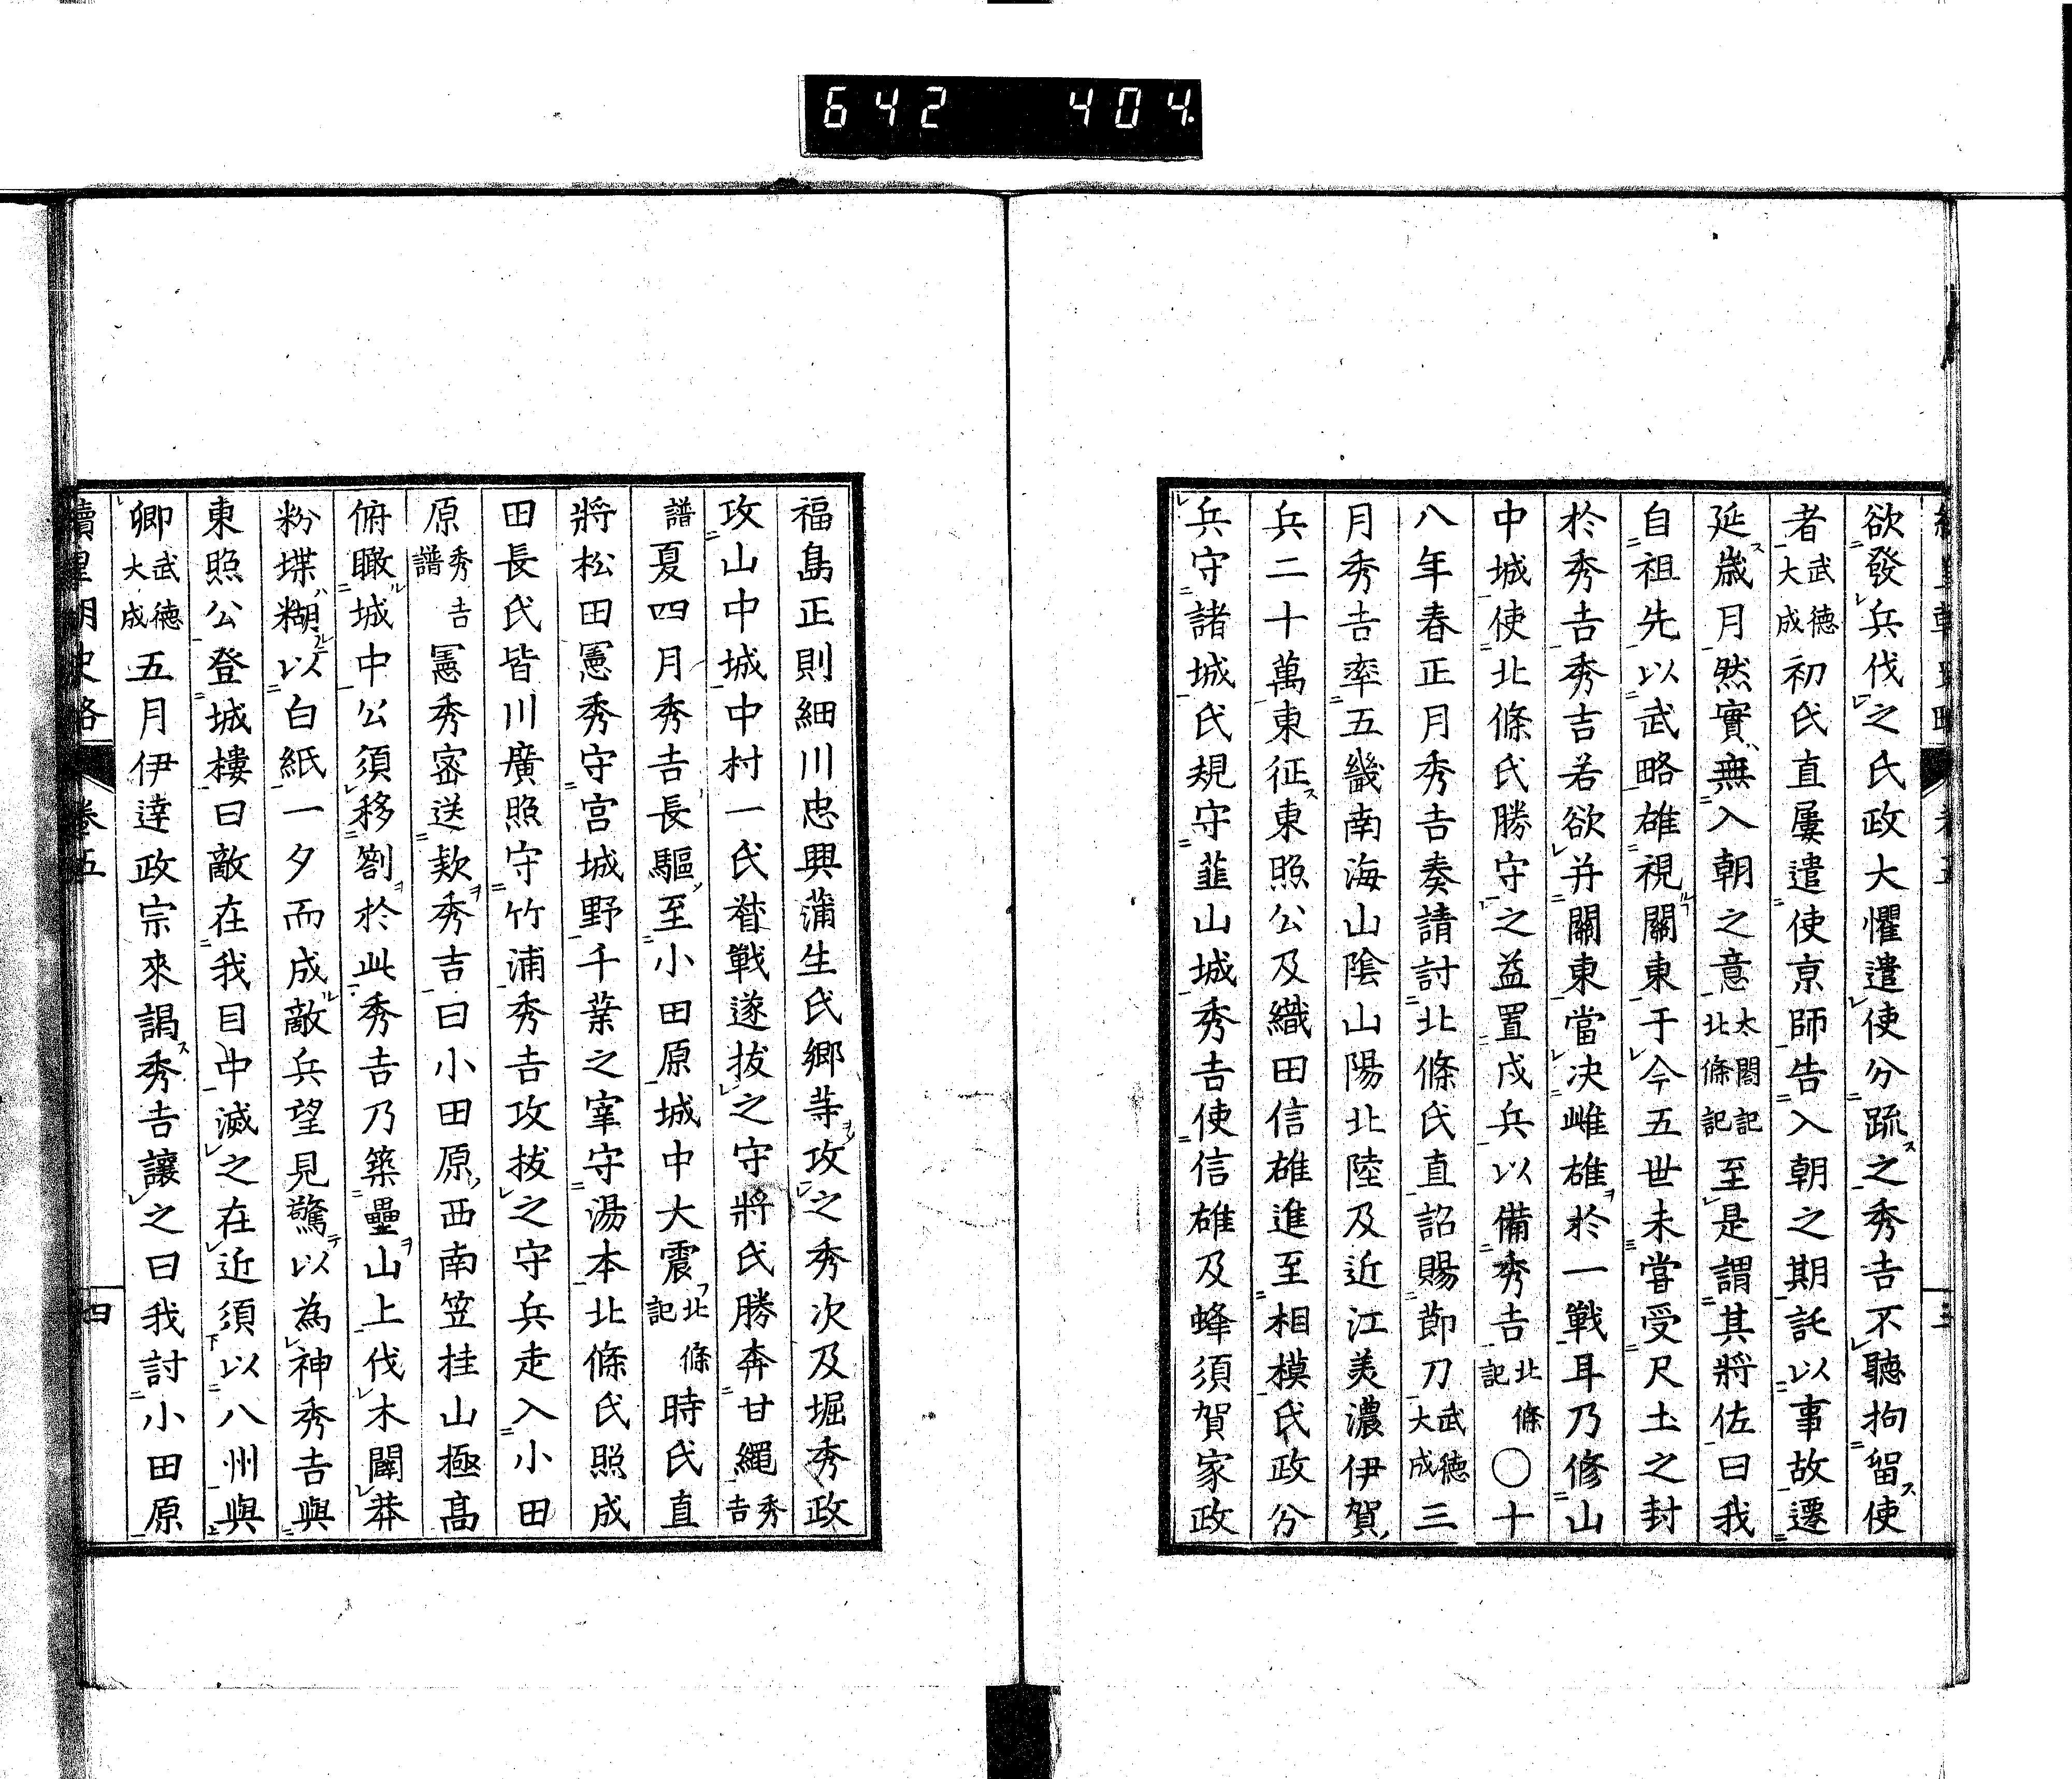 642 404
欲發兵伐之氏政大懼遣使分疏之秀吉不聽拘留使
者武德大成初氏直屢遣使京師告入朝之期託以事故遷
延歲月然實無入朝之意太閤記北條記至是謂其將佐曰我
自祖先以武略雄視關東于今五世未嘗受尺土之封
於秀吉秀吉若欲并關東當决雌雄於一戰耳乃修山
中城使北條氏勝守之益置戍兵以備秀吉北條記〇十
八年春正月秀吉奏請討北條氏直詔賜節刀武德大成三
月秀吉率五畿南海山陰山陽北陸及近江美濃伊賀
兵二十萬東征東照公及織田信雄進至相模氏政分
兵守諸城氏規守韮山城秀吉使信雄及蜂須賀家政
福島正則細川忠興蒲生氏鄉等攻之秀次及堀秀政
攻山中城中村一氏督戰遂拔之守將氏勝奔甘繩秀吉
譜夏四月秀吉長驅至小田原城中大震北條記時氏直
將松田憲秀守宮城野千葉之宰守湯本北條氏照成
田長氏皆川廣照守竹浦秀吉攻拔之守兵走入小田
原秀吉譜憲秀密送欵秀吉曰小田原西南笠挂山極高
俯瞰城中公須移劄於此秀吉乃築壘山上伐木闢莽
粉堞糊以白紙一夕而成敵兵望見驚以為神秀吉與
東照公登城樓曰敵在我目中滅之在近須以八州與
卿武德大成五月伊達政宗來謁秀吉讓之曰我討小田原
續皇朝史略 卷五 四